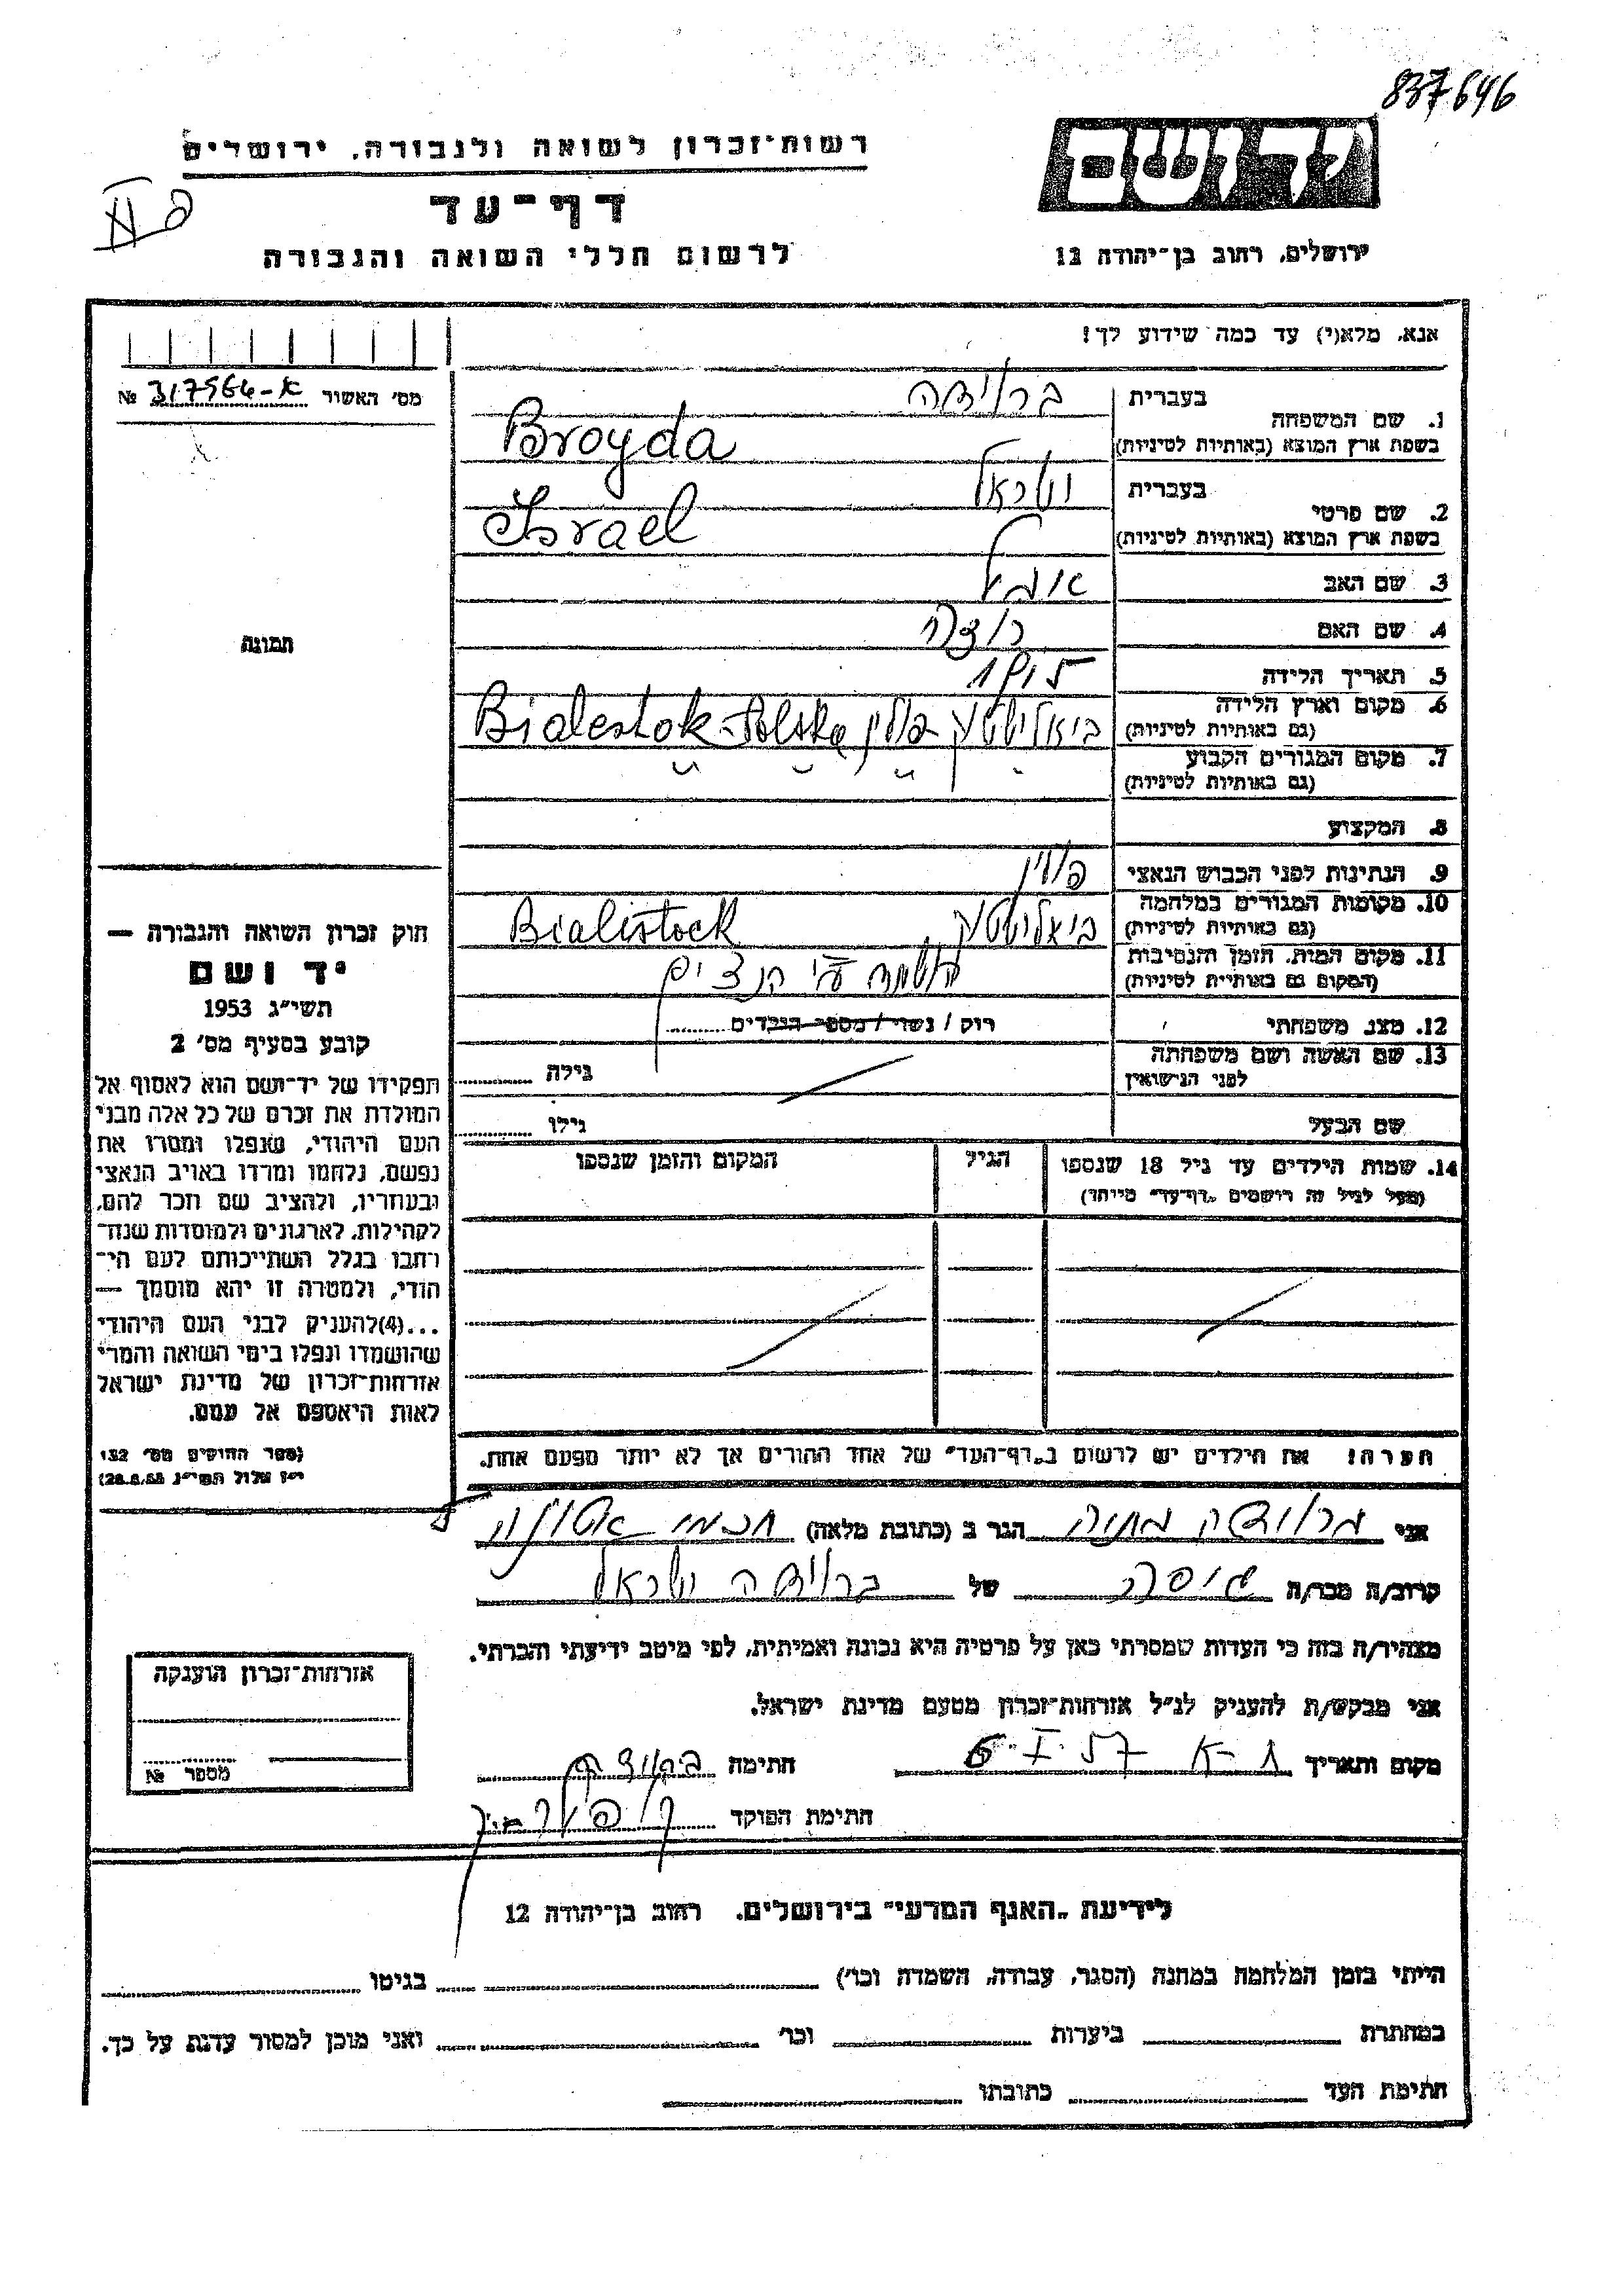 837646
רשות-זכרון לשואה ולגבורה, ירושלים
יד ושם
דף-עד
לרשום חללי השואה והגבורה
ירושלים, רחוב בן-יהודה 12
אנא, מלא(י) עד כמה שידוע לך!
מס׳ האשור א-317566 №
תמונה
1. שם המשפחה בעברית ברוידה
בשפת ארץ המוצא (באותיות לטיניות) Broyda
2. שם פרטי בעברית ישראל
בשפת ארץ המוצא (באותיות לטיניות) Israel
3. שם האב
4. שם האם
5. תאריך הלידה 1915
6. מקום וארץ הלידה (גם באותיות לטיניות) ביאליסטוק פולין Bialestok-Polska
7. מקום המגורים הקבוע (גם באותיות לטיניות) " " " "
8. המקצוע
9. הנתינות לפני הכבוש הנאצי פולין
10. מקומות המגורים במלחמה (גם באותיות לטיניות) ביאליסטוק Bialistock
11. מקום המות, הזמן והנסיבות (המקום גם באותיות לטיניות) הושמד ע״י הנצים
12. מצב משפחתי רווק / נשוי / מספר הילדים
13. שם האשה ושם משפחתה לפני הנישואין גילה
שם הבעל גילו
14. שמות הילדים עד גיל 18 שנספו הגיל המקום והזמן שנספו
(מעל לגיל זה רושמים „דף-עד״ מיוחד)
חוק זכרון השואה והגבורה —
יד ושם
תשי״ג 1953
קובע בסעיף מס׳ 2
תפקידו של יד-ושם הוא לאסוף אל
המולדת את זכרם של כל אלה מבני
העם היהודי, שנפלו ומסרו את
נפשם, נלחמו ומרדו באויב הנאצי
ובעוזריו, ולהציב שם וזכר להם,
לקהילות, לארגונים ולמוסדות שנח-
רבו בגלל השתייכותם לעם הי-
הודי, ולמטרה זו יהא מוסמך —
...(4) להעניק לבני העם היהודי
שהושמדו ונפלו בימי השואה והמרי
אזרחות-זכרון של מדינת ישראל
לאות היאספם אל עמם.
(ספר החוקים מס׳ 132
י״ז אלול תשי״ג 28.8.53)
הערה! את הילדים יש לרשום ב„דף-העד״ של אחד ההורים אך לא יותר מפעם אחת.
אני ברוידה הגר ב (כתובת מלאה)
קרוב/ה מכר/ה גיסה של ברוידה ישראל
מצהיר/ה בזה כי העדות שמסרתי כאן על פרטיה היא נכונה ואמיתית, לפי מיטב ידיעתי והכרתי.
אני מבקש/ת להעניק לנ״ל אזרחות-זכרון מטעם מדינת ישראל.
מקום ותאריך 6.I.57 חתימה ברוידה
חתימת הפוקד
אזרחות-זכרון הוענקה
מספר №
לידיעת „האגף המדעי״ בירושלים, רחוב בן-יהודה 12
הייתי בזמן המלחמה במחנה (הסגר, עבודה, השמדה וכו׳) בגיטו
במחתרת ביערות וכו׳ ואני מוכן למסור עדות על כך.
חתימת העד כתובתו